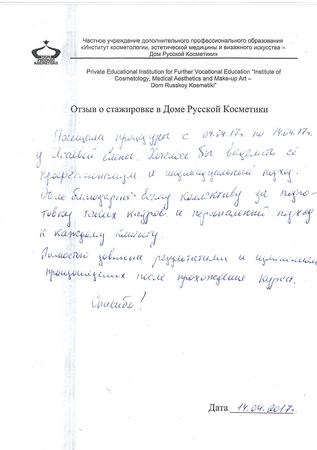 ДОМ РУССКОЙ КОСМЕТИКИ
Частное учреждение дополнительного профессионального образования
«Институт косметологии, эстетической медицины и визажного искусства –
Дом Русской Косметики»
Private Educational Institution for Further Vocational Education "Institute of
Cosmetology, Medical Aesthetics and Make-up Art –
Dom Russkoy Kosmetiki"
Отзыв о стажировке в Доме Русской Косметики
Посещала процедуры с 04.04.17г. по 14.04.17г.
у Елены. Хотелось бы выделить её
профессионализм и индивидуальный подход.
благодарна всему коллективу за подго-
товку таких кадров и персональный подход
к каждому клиенту.
Полностью довольна результатами и изменениями
произошедших после прохождения курса.
Спасибо!
Дата 14.04.2017г.